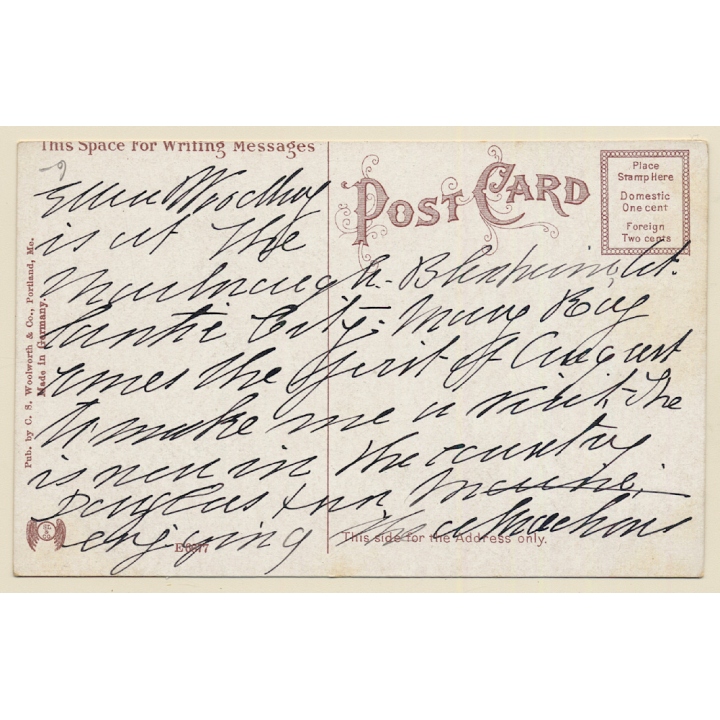 This Space For Writing Messages
POST CARD
Place
Stamp Here
Domestic
One cent
Foreign
Two cents
Pub. by C. S. Woolworth & Co., Portland, Me.
Made in Germany.
Ellen
is at the
Marlborough-Blenheim, At-
lantic City. Mary Ray
comes the first of August
to make me a visit. She
is now in the country
Douglas + Ann
enjoying the
E6677
This side for the Address only.